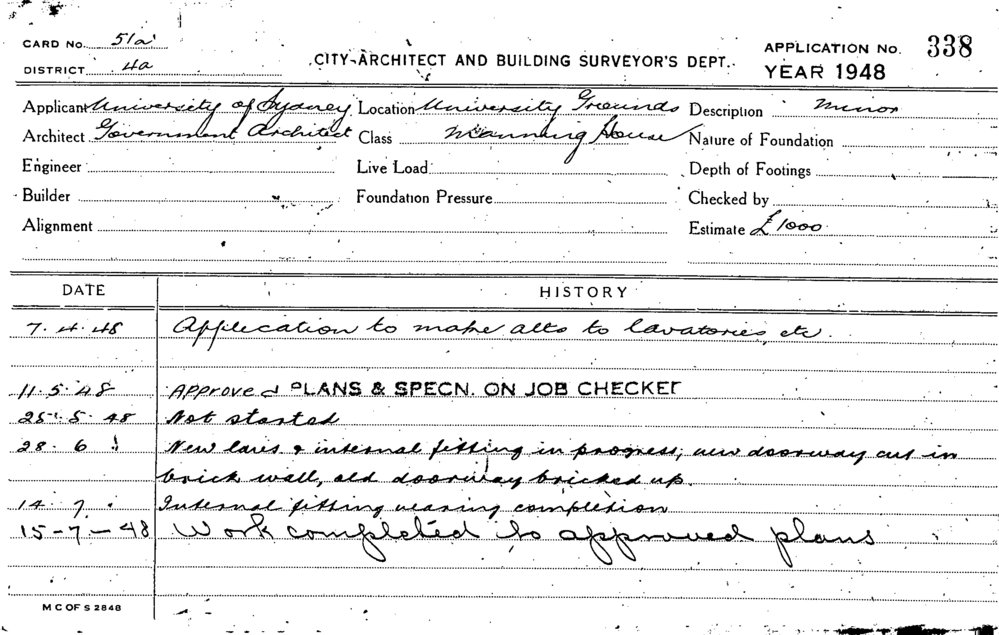 CARD No. 51a APPLICATION No. 338
DISTRICT 4a CITY ARCHITECT AND BUILDING SURVEYOR'S DEPT. YEAR 1948
Applicant University of Sydney Location University Grounds Description Minor
Architect Government Architect Class Manning House Nature of Foundation
Engineer Live Load Depth of Footings
Builder Foundation Pressure Checked by
Alignment Estimate £1000
DATE HISTORY
7.4.48 Application to make alts to lavatories, etc.
11.5.48 Approved PLANS & SPECN. ON JOB CHECKED
25.5.48 Not started
28.6 " New lavs. & internal fitting in progress; new doorway cut in
brick wall, old doorway bricked up.
14.7. Internal fitting nearing completion
15-7-48 Work completed to approved plans
M C OF S 2848